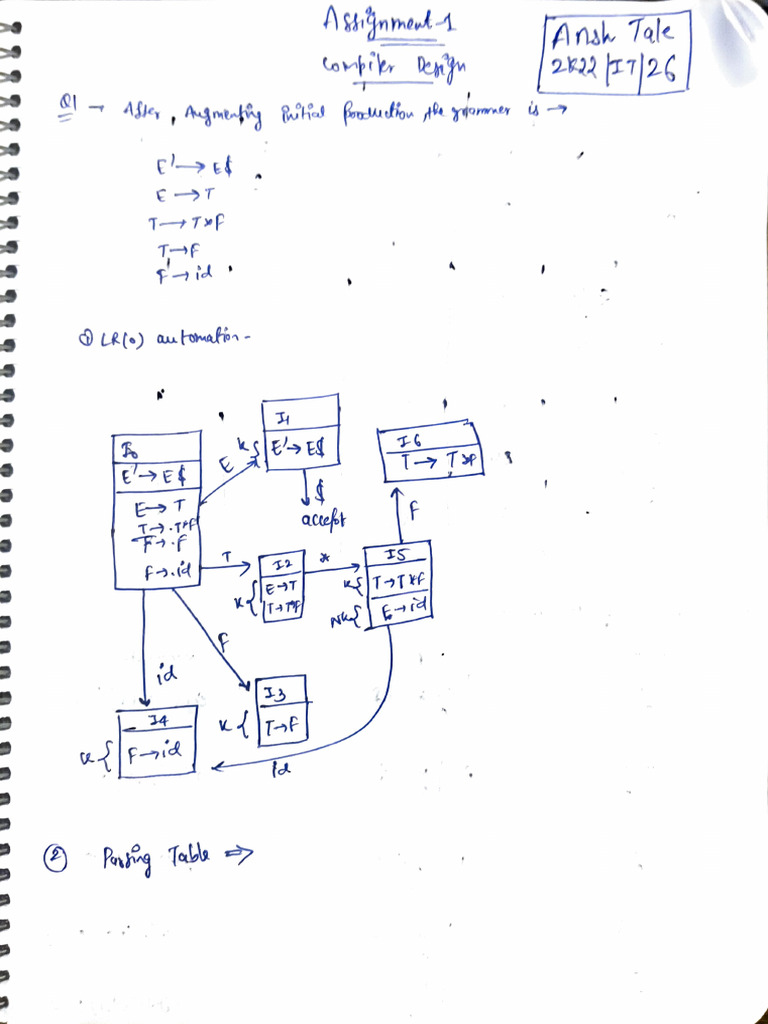 Assignment-1
Compiler Design
Ansh Tale
2K22/IT/26
Q1 → After, Augmenting initial production, the grammer is →
E' → E$
E → T
T → T*F
T → F
F' → id
① LR(0) automation-
I0
E' → E$
E → T
T → .T*F
F → .F
F → .id
E
I1
K{ E' → E$
$
accept
I6
T → T*F
F
T
I2
K{ E → T
T → T*F
*
I5
K{ T → T*F
NK{ E → id
id
F
I4
K{ F → id
I3
K{ T → F
id
② Parsing Table ⇒